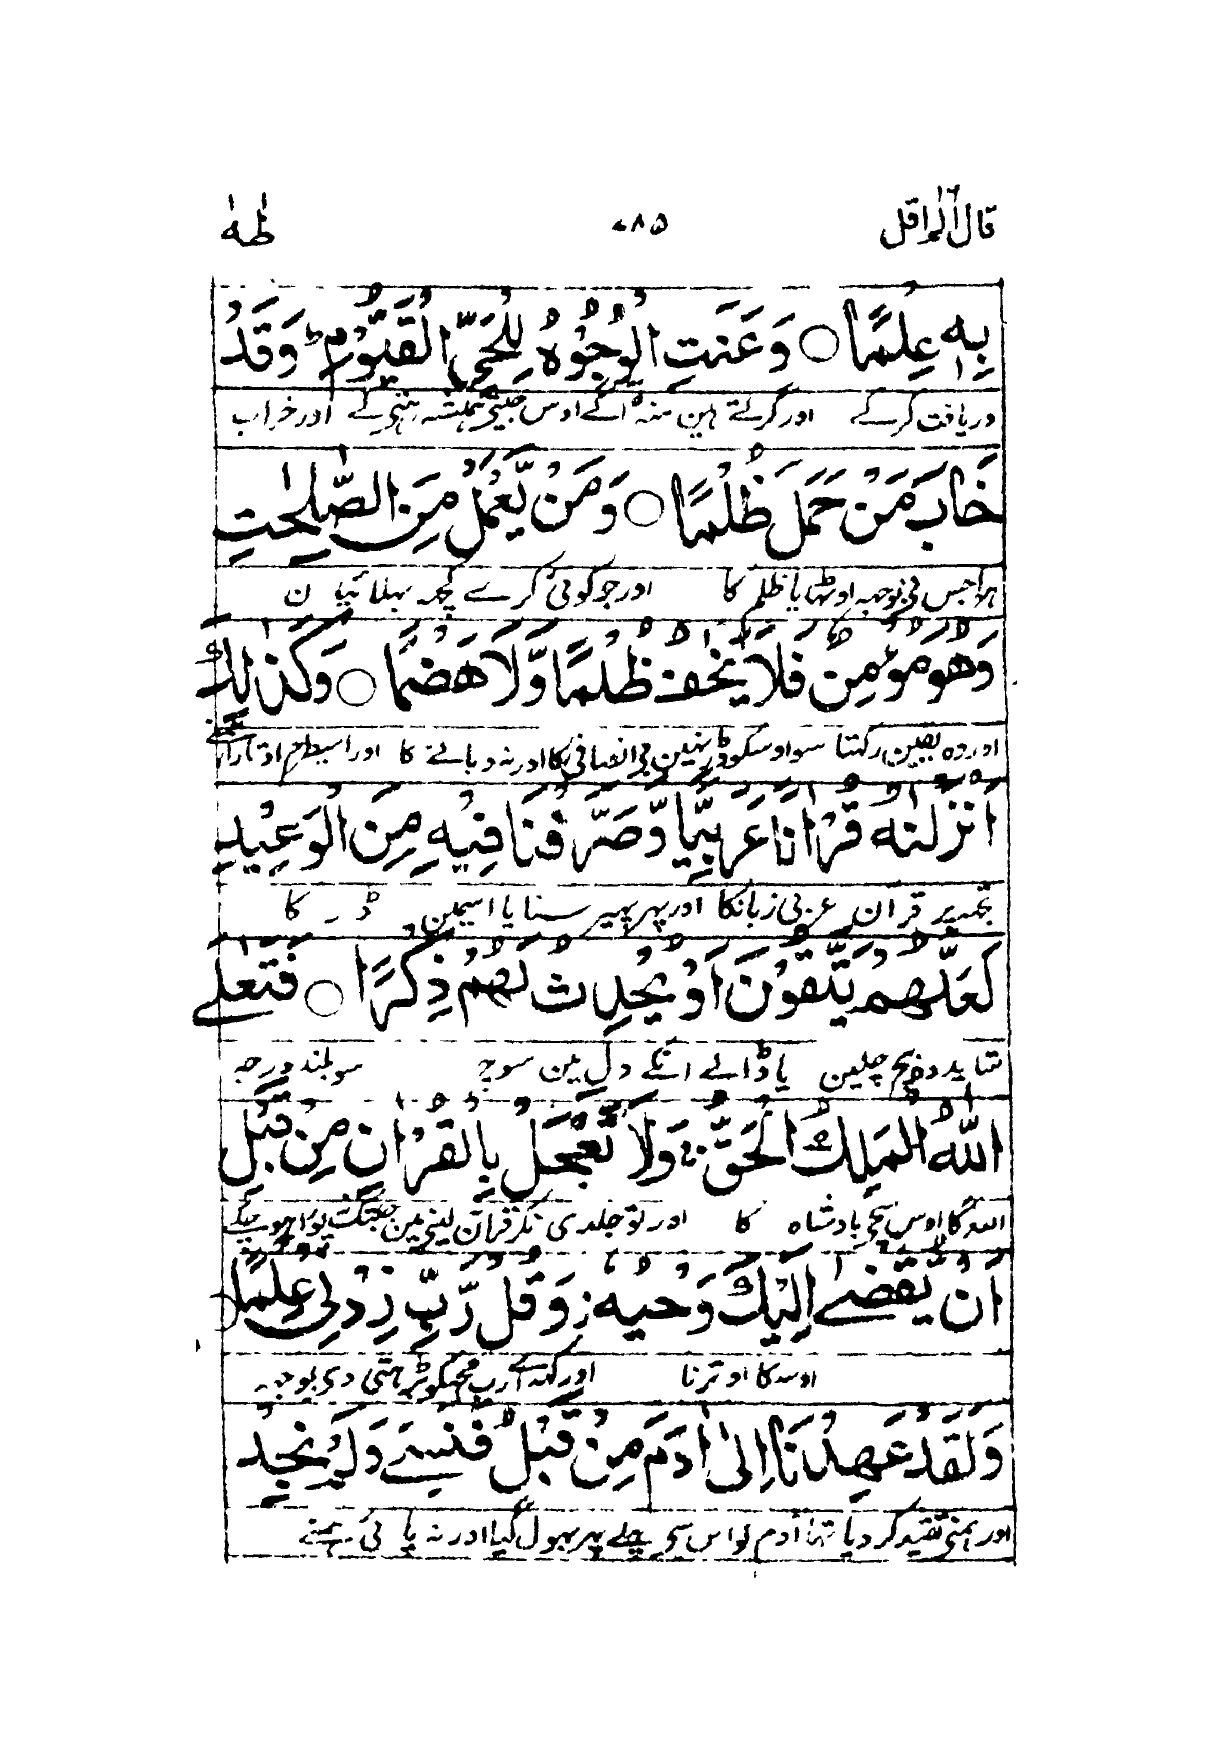 قال الم اقل ١٦
٧٨٥
طٰهٰ
بِهٖ عِلْمًا ○ وَعَنَتِ الْوُجُوْهُ لِلْحَىِّ الْقَيُّوْمِ ؕ وَقَدْ
دریافت کرکے اور گرتے ہین منہ آگے اوس جیتے ہمیشہ رہتے کے اور خراب
خَابَ مَنْ حَمَلَ ظُلْمًا ○ وَمَنْ يَّعْمَلْ مِنَ الصّٰلِحٰتِ
ہوا جس نے بوجہہ اوٹہایا ظلم کا اور جو کوئی کرے کچہہ بہلائیان
وَهُوَ مُؤْمِنٌ فَلَا يَخٰفُ ظُلْمًا وَّلَا هَضْمًا ○ وَكَذٰلِكَ
اور وہ یقین رکہتا سو اوسکو ڈر نہین بے انصافی کا اور نہ دبانے کا اور اسیطرح اوتارا ہمنے
اَنْزَلْنٰهُ قُرْاٰنًا عَرَبِيًّا وَّصَرَّفْنَا فِيْهِ مِنَ الْوَعِيْدِ
تجہہ پر قرآن عربی زبانکا اور پہر پہیر سنایا اسمین ڈر کا
لَعَلَّهُمْ يَتَّقُوْنَ اَوْ يُحْدِثُ لَهُمْ ذِكْرًا ○ فَتَعٰلَى
شاید وہ بچ چلین یا ڈالے انکے دل مین سوچ سو بلند درجہ
اللّٰهُ الْمَلِكُ الْحَقُّ ۚ وَلَا تَعْجَلْ بِالْقُرْاٰنِ مِنْ قَبْلِ
اللہ کا اوس سچے بادشاہ کا اور تو جلدی نکر قرآن لینے مین جبتک پورا ہو چکے
اَنْ يُّقْضٰى اِلَيْكَ وَحْيُهٗ ز وَقُلْ رَّبِّ زِدْنِىْ عِلْمًا ○
اوسکا اوترنا اور کہہ اے رب مجہکو بڑہتی دے بوجہہ
وَلَقَدْ عَهِدْنَا اِلٰى اٰدَمَ مِنْ قَبْلُ فَنَسِىَ وَلَمْ نَجِدْ
اور ہمنے تقید کر دیا تہا آدم کو اس سے پہلے پہر بہول گیا اور نہ پائی ہمنے